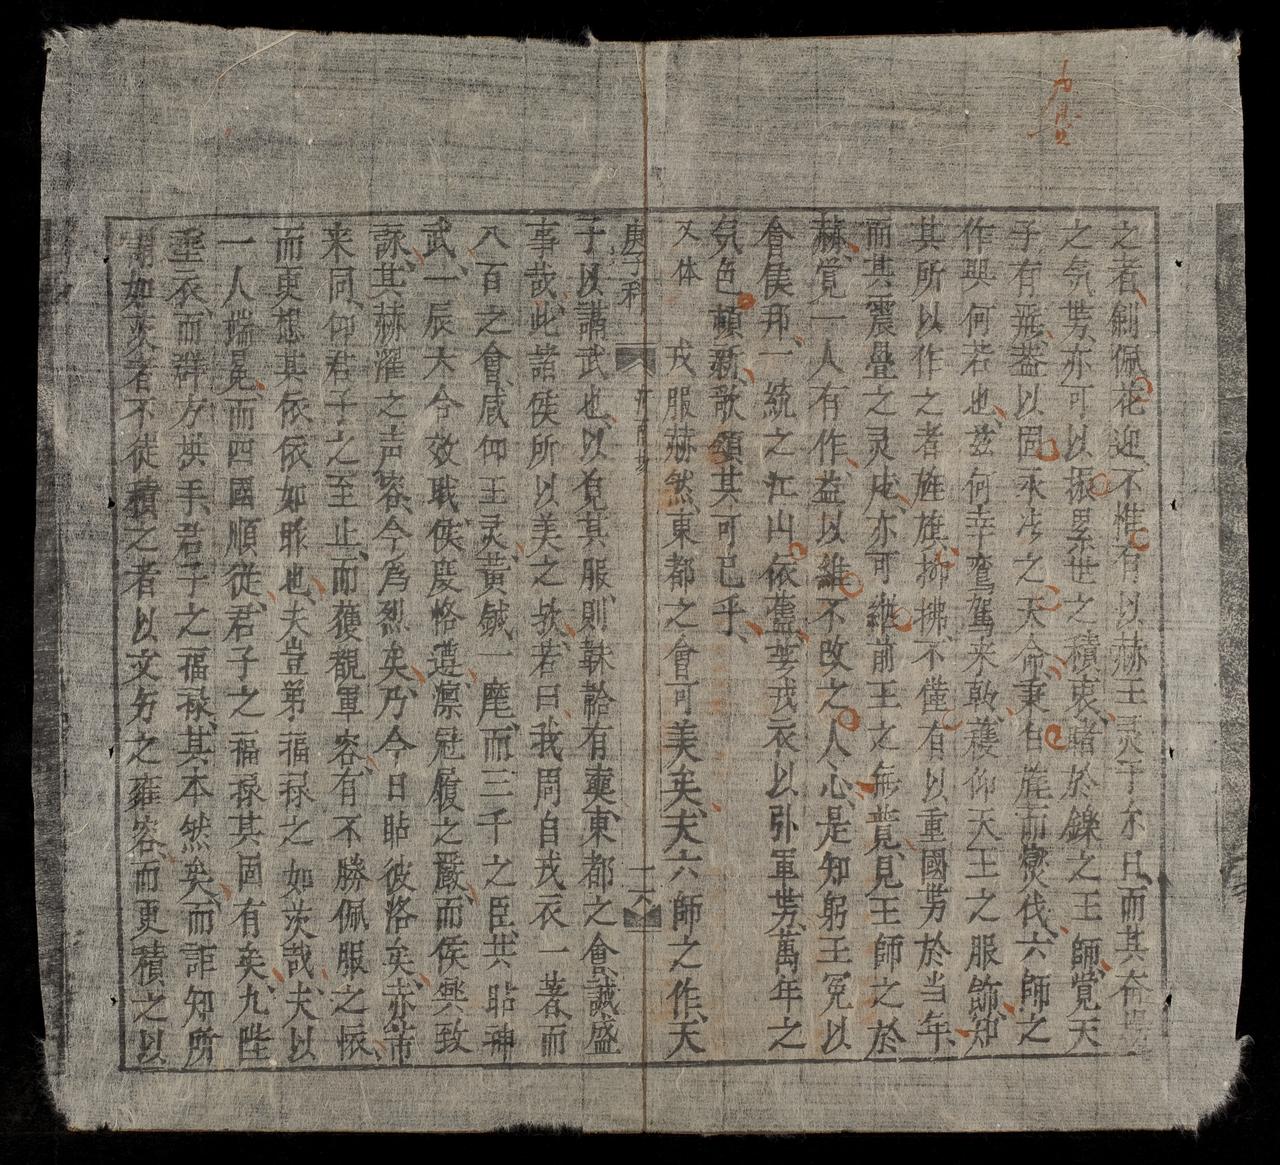 之者劍佩花迎不惟有以赫王灵于尔日而其奋
之気势亦可以振累世之積衷睹於鑠之王師覚天
子有巡葢以固永㳒之天命秉白旄而燮伐六師之
作興何若也茲何幸鸞駕来乾護仰天王之服飾知
其所以作之者旌旗挪拂不僅有以重國势於当年
而其震疊之灵㐌亦可継前王之無覚見王師之於
赫覚一人有作益以維不改之人心是知躬王冕以
會侯邦一統之江山依舊箕戎衣以引軍势萬年之
気色頓新歌頌其可已乎
又体　戎服赫然東都之會可美矣夫六師之作天
庚子科
河南塲
二六
子以講武也以覓其服則韎韐有奭東都之會誠盛
事哉此諸侯所以美之欤若曰我周自戎衣一著而
八百之會咸仰王灵黃鉞一麾而三千之臣共貼神
武一辰大合效戢侯度恪遵凛冠履之嚴而侯興致
詠其赫濯之声容今爲烈矣乃今日貼彼洛矣赤芾
来同仰君子之至止而獲覩軍容有不勝佩服之悵
而更想其依依如昨也夫豈弟福禄之如茨哉夫以
一人端冕而四國順從君子之福禄其固有矣九陛
埀衣而群方拱手君子之福禄其本然矣而詎知所
謂如茨者不徒積之者以文势之雍容而更積之以